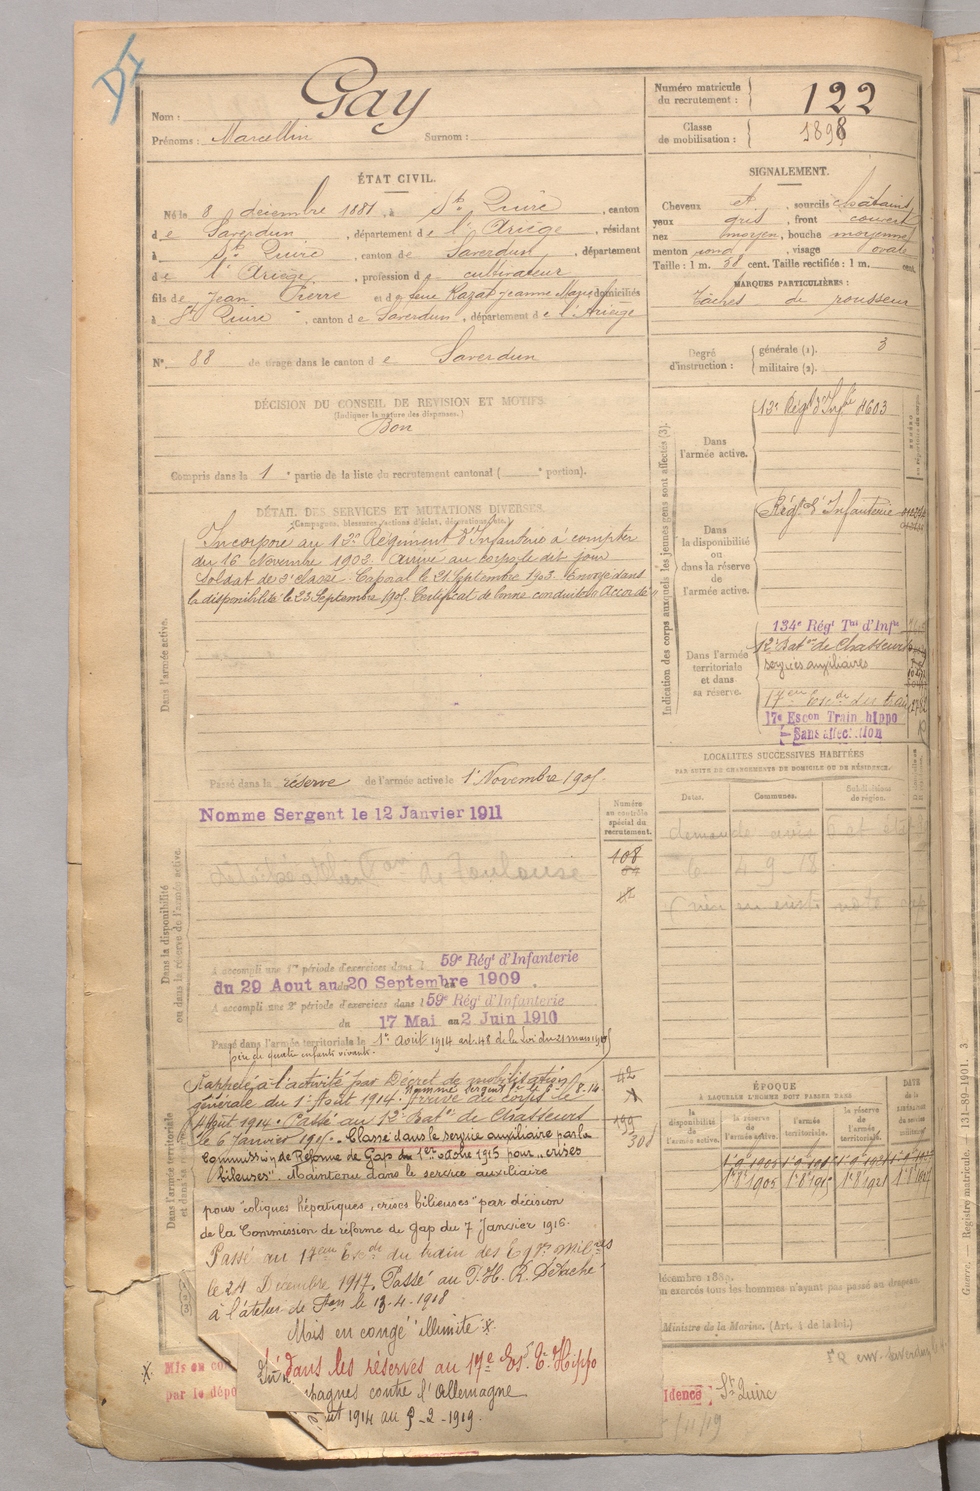 Nom : Gay
Prénoms : Marcellin Surnom :
Numéro matricule du recrutement : 122
Classe de mobilisation : 1898
ÉTAT CIVIL.
Né le 8 décembre 1881, à St Quirc, canton
de Saverdun, département de l'Ariège, résidant
à St Quirc, canton de Saverdun, département
de l'Ariège, profession de cultivateur
fils de Jean Pierre et de feue Razat Jeanne Marie, domiciliés
à St Quirc, canton de Saverdun, département de l'Ariège
N° 88 de tirage dans le canton de Saverdun
SIGNALEMENT.
Cheveux et, sourcils châtains
yeux gris, front couvert
nez moyen, bouche moyenne
menton rond, visage ovale
Taille : 1 m. 58 cent. Taille rectifiée : 1 m. cent.
MARQUES PARTICULIÈRES :
Tâches de rousseur
Degré d'instruction : générale (1). 3
militaire (2).
DÉCISION DU CONSEIL DE REVISION ET MOTIFS.
(Indiquer la nature des dispenses.)
Bon
Compris dans la 1e partie de la liste du recrutement cantonal ( e portion).
DÉTAIL DES SERVICES ET MUTATIONS DIVERSES.
(Campagnes, blessures, actions d'éclat, décorations, etc.)
Dans l'armée active.
Incorporé au 13e Régiment d'Infanterie à compter
du 16 Novembre 1902. Arrivé au corps le dit jour
Soldat de 2e classe. Caporal le 21 Septembre 1903. Envoyé dans
la disponibilité le 23 Septembre 1905. Certificat de bonne conduite Accordé
Passé dans la réserve de l'armée active le 1er Novembre 1905.
Dans la disponibilité ou dans la réserve de l'armée active.
Nomme Sergent le 12 Janvier 1911
de Toulouse
A accompli une 1re période d'exercices dans l 59e Régt d'Infanterie
du 29 Aout au 20 Septembre 1909
A accompli une 2e période d'exercices dans l 59e Régt d'Infanterie
du 17 Mai au 2 Juin 1910
Passé dans l'armée territoriale le 1er Août 1914 art. 48 de la Loi du 21 mars 1905
père de quatre enfants vivants.
Numéro au contrôle spécial du recrutement.
108
42
199
308
Dans l'armée territoriale
Rappelé à l'activité par Décret de mobilisation
générale du 1er Août 1914. Arrivé au corps le
Nommé Sergent le 6-8-14
4 Août 1914. Passé au 12e Baton de Chasseurs
le 6 Janvier 1915. Classé dans le service auxiliaire par la
Commission de Réforme de Gap du 1er octobre 1915 pour "crises
bilieuses". Maintenu dans le service auxiliaire
pour "coliques hépatiques, crises bilieuses" par décision
de la Commission de réforme de Gap du 7 Janvier 1916.
Passé au 17eme Escdn du train des Eqges milres
le 24 Décembre 1917. Passé au T. H. R. Détaché
à l'atelier de le 13-4-1918
Mis en congé illimité X.
dans les réserves au 17e Esn T. Hippo
pagnes contre l'Allemagne
ut 1914 au 9-2-1919.
X. Mis en con
par le dépô
Indication des corps auxquels les jeunes gens sont affectés (3).
Dans l'armée active.
13e Régt d'Infie 4603
Dans la disponibilité ou dans la réserve de l'armée active.
Régt d'Infanterie
Dans l'armée territoriale et dans sa réserve.
134e Régt Tal d'Infie
12e Baton de Chasseurs
services auxiliaires
17eme Escdn du train
17e Escon Train hippo
Sans affectation
LOCALITÉS SUCCESSIVES HABITÉES
PAR SUITE DE CHANGEMENTS DE DOMICILE OU DE RÉSIDENCE.
Dates. Communes. Subdivisions de région.
demande avis
le 4 9 18
ÉPOQUE
À LAQUELLE L'HOMME DOIT PASSER DANS
la disponibilité de l'armée active. la réserve de l'armée active. l'armée territoriale. la réserve de l'armée territoriale.
DATE DE LA LIBÉRATION DU SERVICE MILITAIRE
décembre 1889.
on exercés tous les hommes n'ayant pas passé au drapeau
Ministre de la Marine. (Art. 4 de la loi.)
idence St Quirc
/11/19
Guerre. Registre matricule. — 131-89-1901. 3.